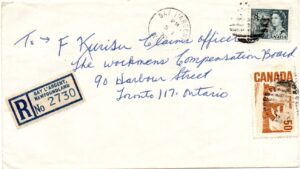 BAY L'ARGENT
To → F Kuriser Claims officer
The workmens Compensation Board
90 Harbour Street
Toronto 117. Ontario
R
BAY L'ARGENT,
NEWFOUNDLAND
No 2730
CANADA
50